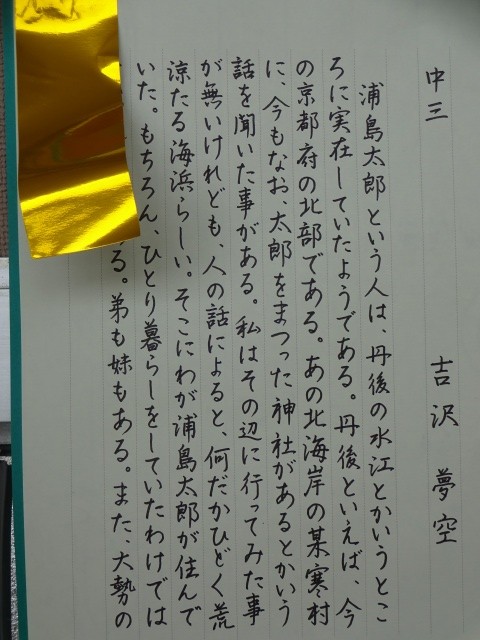 中三 吉沢 夢空
浦島太郎という人は、丹後の水江とかいうとこ
ろに実在していたようである。丹後といえば、今
の京都府の北部である。あの北海岸の某寒村
に、今もなお、太郎をまつった神社があるとかいう
話を聞いた事がある。私はその辺に行ってみた事
が無いけれども、人の話によると、何だかひどく荒
涼たる海浜らしい。そこにわが浦島太郎が住んで
いた。もちろん、ひとり暮らしをしていたわけでは
る。弟も妹もある。また、大勢の